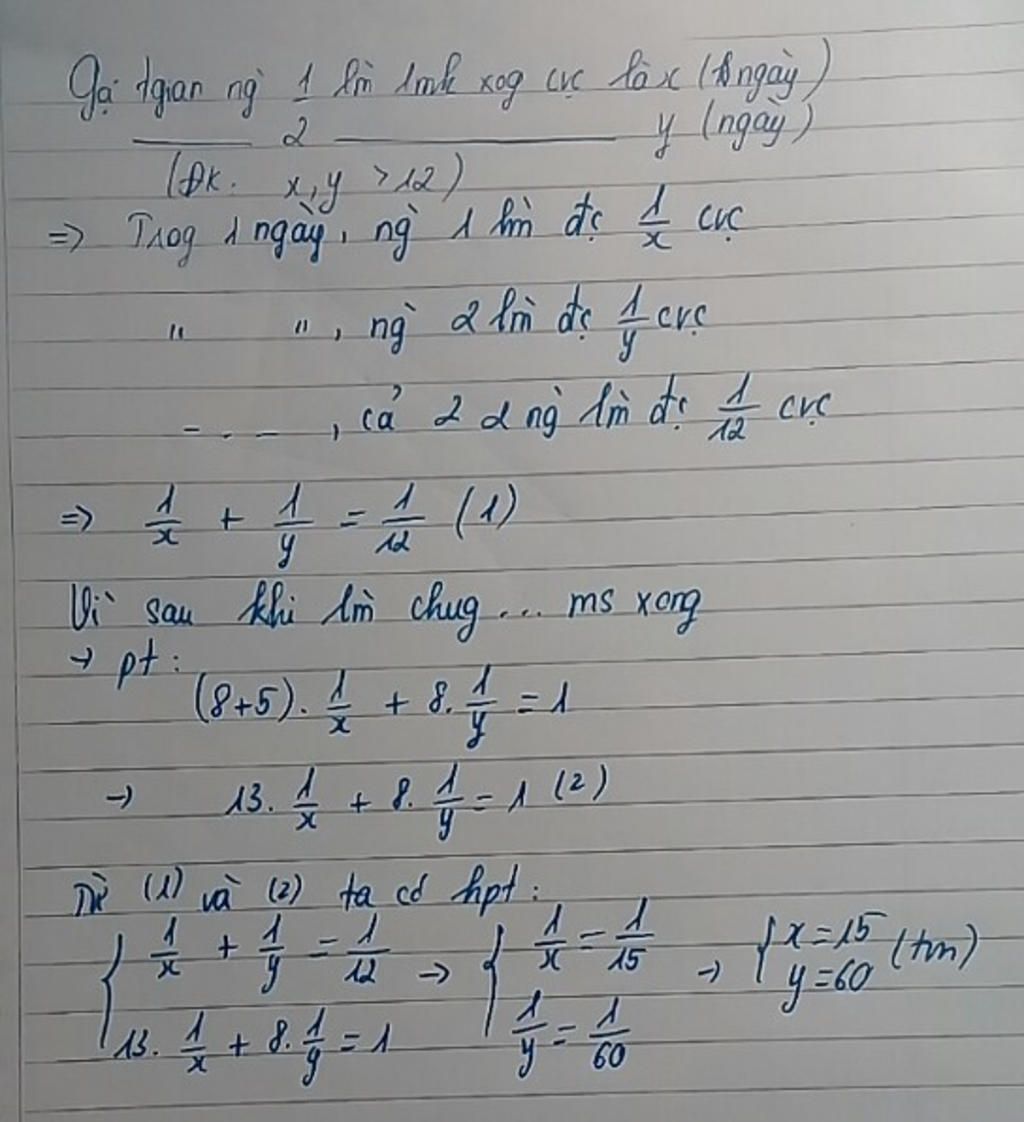 Gọi tgian ng` 1 lm` 1mk xog cvc là x (ngày)
——— 2 ——————— y (ngày)
(Đk: x, y > 12)
=> Trog 1 ngày, ng` 1 lm` đc 1/x cvc
" ", ng` 2 lm` đc 1/y cvc
- . . - , cả 2 ng` lm` đc 1/12 cvc
=> 1/x + 1/y = 1/12 (1)
Vì sau khi lm` chug ... ms xong
→ pt:
(8+5). 1/x + 8. 1/y = 1
→ 13. 1/x + 8. 1/y = 1 (2)
Từ (1) và (2) ta có hpt:
{ 1/x + 1/y = 1/12 → { 1/x = 1/15 → { x = 15 (tm)
13. 1/x + 8. 1/y = 1 1/y = 1/60 y = 60